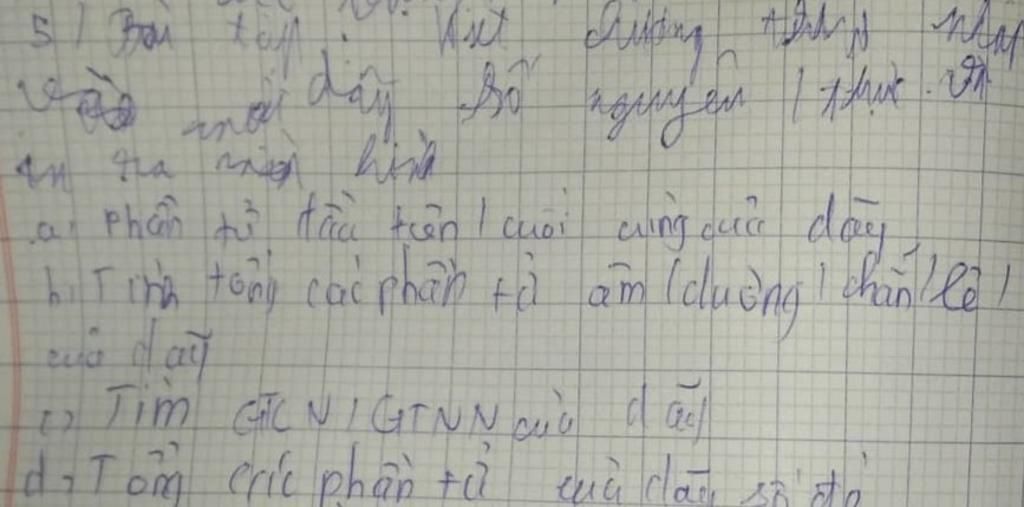 5) Bài tập: Viết chương trình nhập
vào một dãy số nguyên / thực. và
in ra màn hình
a. Phần tử đầu tiên / cuối cùng của dãy
b. Tính tổng các phần tử âm (dương / chẵn / lẻ)
của dãy
c) Tìm GTCN / GTNN của dãy
d, Tổng các phần tử của dãy số đó